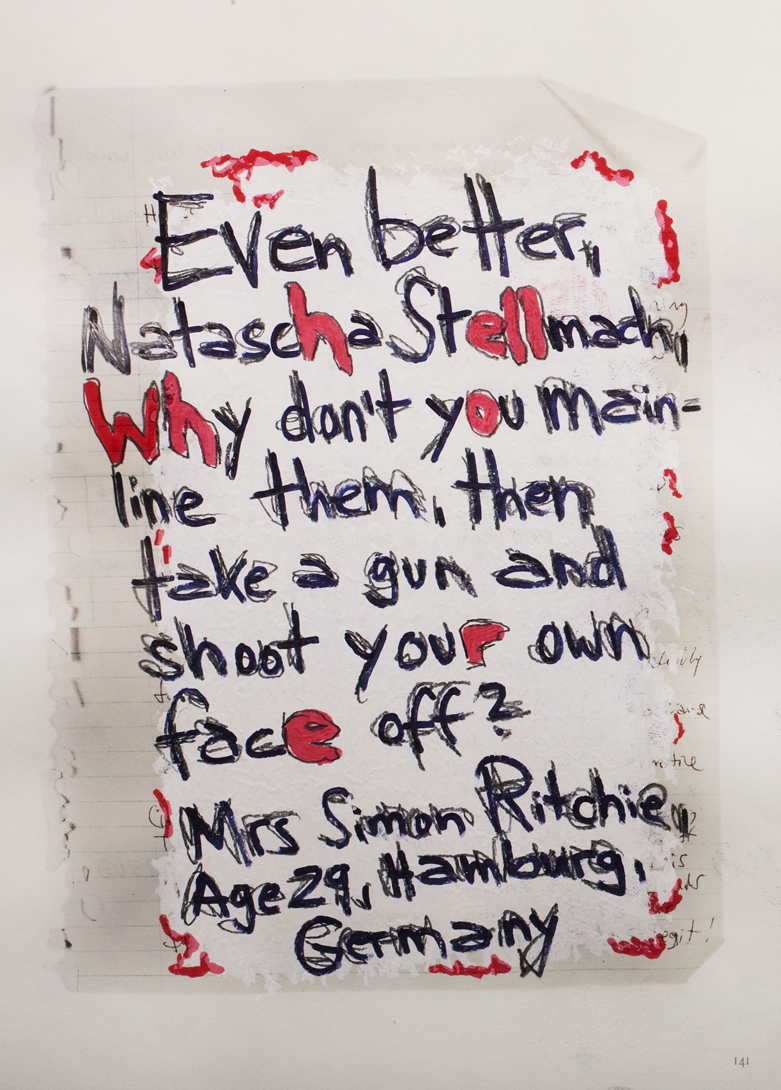 Even better,
Natascha Stellmach,
Why don't you main-
line them, then
take a gun and
shoot your own
face off?
Mrs Simon Ritchie,
Age 29, Hamburg,
Germany
141